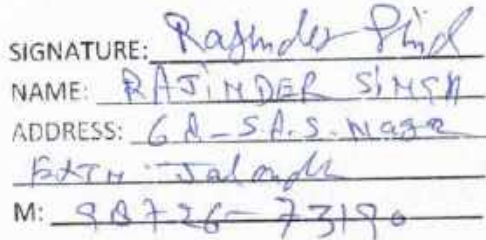 SIGNATURE: Rajinder Singh
NAME: RAJINDER SINGH
ADDRESS: 6A-S.A.S. Nagar
Jalandh
M: 98726-73190